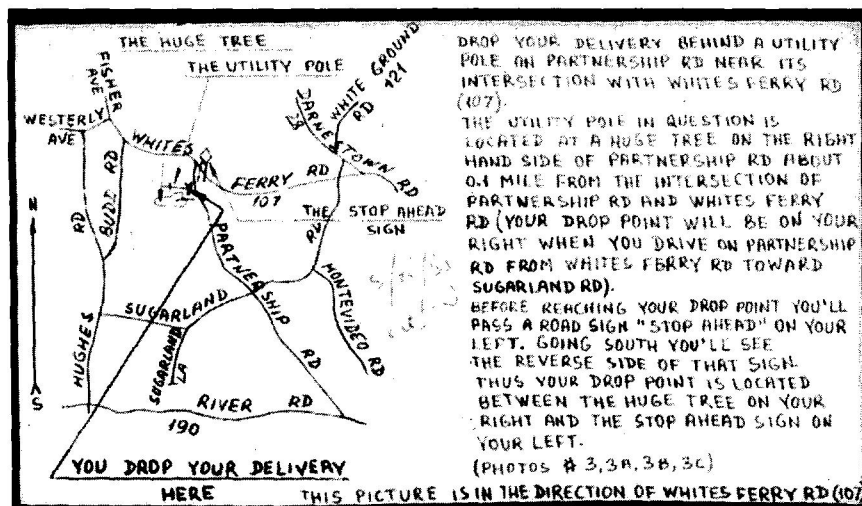 THE HUGE TREE
THE UTILITY POLE
FISHER AVE
WESTERLY AVE
WHITES
FERRY RD
107
WHITE GROUND RD 121
DARNESTOWN RD
28
BUDD RD
THE STOP AHEAD SIGN
N
S
HUGHES RD
PARTNERSHIP RD
SUGARLAND RD
SUGARLAND LA
MONTEVIDEO RD
RIVER RD
190
YOU DROP YOUR DELIVERY
HERE
DROP YOUR DELIVERY BEHIND A UTILITY
POLE ON PARTNERSHIP RD NEAR ITS
INTERSECTION WITH WHITES FERRY RD
(107).
THE UTILITY POLE IN QUESTION IS
LOCATED AT A HUGE TREE ON THE RIGHT
HAND SIDE OF PARTNERSHIP RD ABOUT
0.1 MILE FROM THE INTERSECTION OF
PARTNERSHIP RD AND WHITES FERRY
RD (YOUR DROP POINT WILL BE ON YOUR
RIGHT WHEN YOU DRIVE ON PARTNERSHIP
RD FROM WHITES FERRY RD TOWARD
SUGARLAND RD).
BEFORE REACHING YOUR DROP POINT YOU'LL
PASS A ROAD SIGN "STOP AHEAD" ON YOUR
LEFT. GOING SOUTH YOU'LL SEE
THE REVERSE SIDE OF THAT SIGN.
THUS YOUR DROP POINT IS LOCATED
BETWEEN THE HUGE TREE ON YOUR
RIGHT AND THE STOP AHEAD SIGN ON
YOUR LEFT.
(PHOTOS # 3, 3A, 3B, 3C)
THIS PICTURE IS IN THE DIRECTION OF WHITES FERRY RD (107)